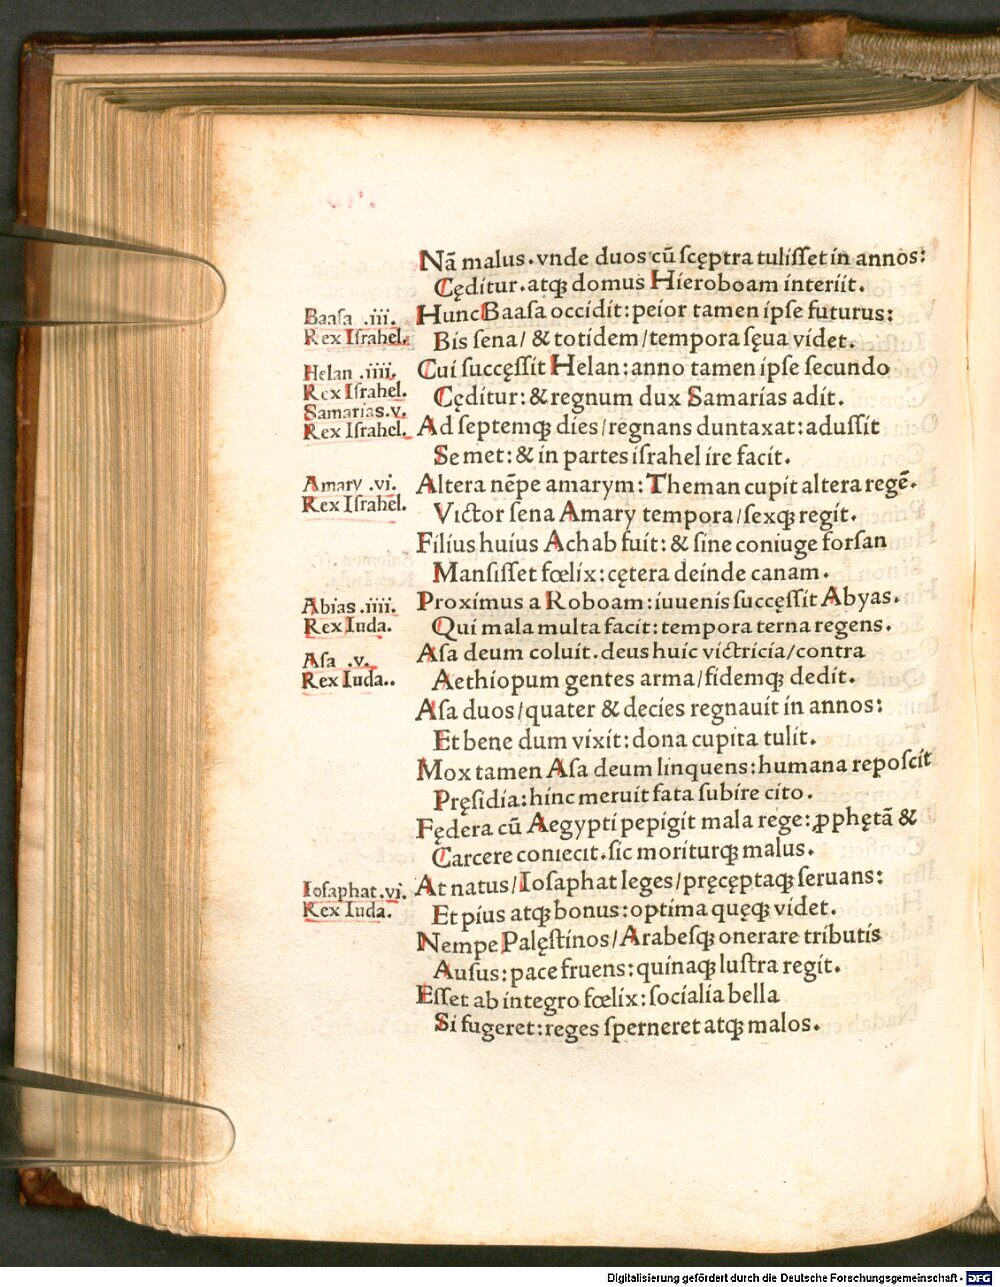 Nã malus.vnde duos cũ sceptra tulisset in annos:
Cęditur.atqꝫ domus Hieroboam interiit.
Baasa .iii.
Rex Israhel.
Hunc Baasa occidit:peior tamen ipse futurus:
Bis sena/ & totidem/tempora sęua videt.
Helan .iiii.
Rex Israhel.
Cui succęssit Helan:anno tamen ipse secundo
Cęditur:& regnum dux Samarias adit.
Samarias.v.
Rex Israhel.
Ad septemqꝫ dies/regnans duntaxat:adussit
Se met:& in partes israhel ire facit.
Amary .vi.
Rex Israhel.
Altera nẽpe amarym:Theman cupit altera regẽ.
Victor sena Amary tempora/sexqꝫ regit.
Filius huius Achab fuit:& sine coniuge forsan
Mansisset fœlix:cętera deinde canam.
Abias .iiii.
Rex Iuda.
Proximus a Roboam:iuuenis succęssit Abyas.
Qui mala multa facit:tempora terna regens.
Asa .v.
Rex Iuda..
Asa deum coluit.deus huic victricia/contra
Aethiopum gentes arma/fidemqꝫ dedit.
Asa duos/quater & decies regnauit in annos:
Et bene dum vixit:dona cupita tulit.
Mox tamen Asa deum linquens:humana reposcit
Pręsidia:hinc meruit fata subire cito.
Fędera cũ Aegypti pepigit mala rege:ꝓphętã &
Carcere coniecit.sic moriturqꝫ malus.
Iosaphat.vi.
Rex Iuda.
At natus/Iosaphat leges/pręcęptaqꝫ seruans:
Et pius atqꝫ bonus:optima quęqꝫ videt.
Nempe Palęstinos/Arabesqꝫ onerare tributis
Ausus:pace fruens:quinaqꝫ lustra regit.
Esset ab integro fœlix:socialia bella
Si fugeret:reges sperneret atqꝫ malos.
Digitalisierung gefördert durch die Deutsche Forschungsgemeinschaft - DFG